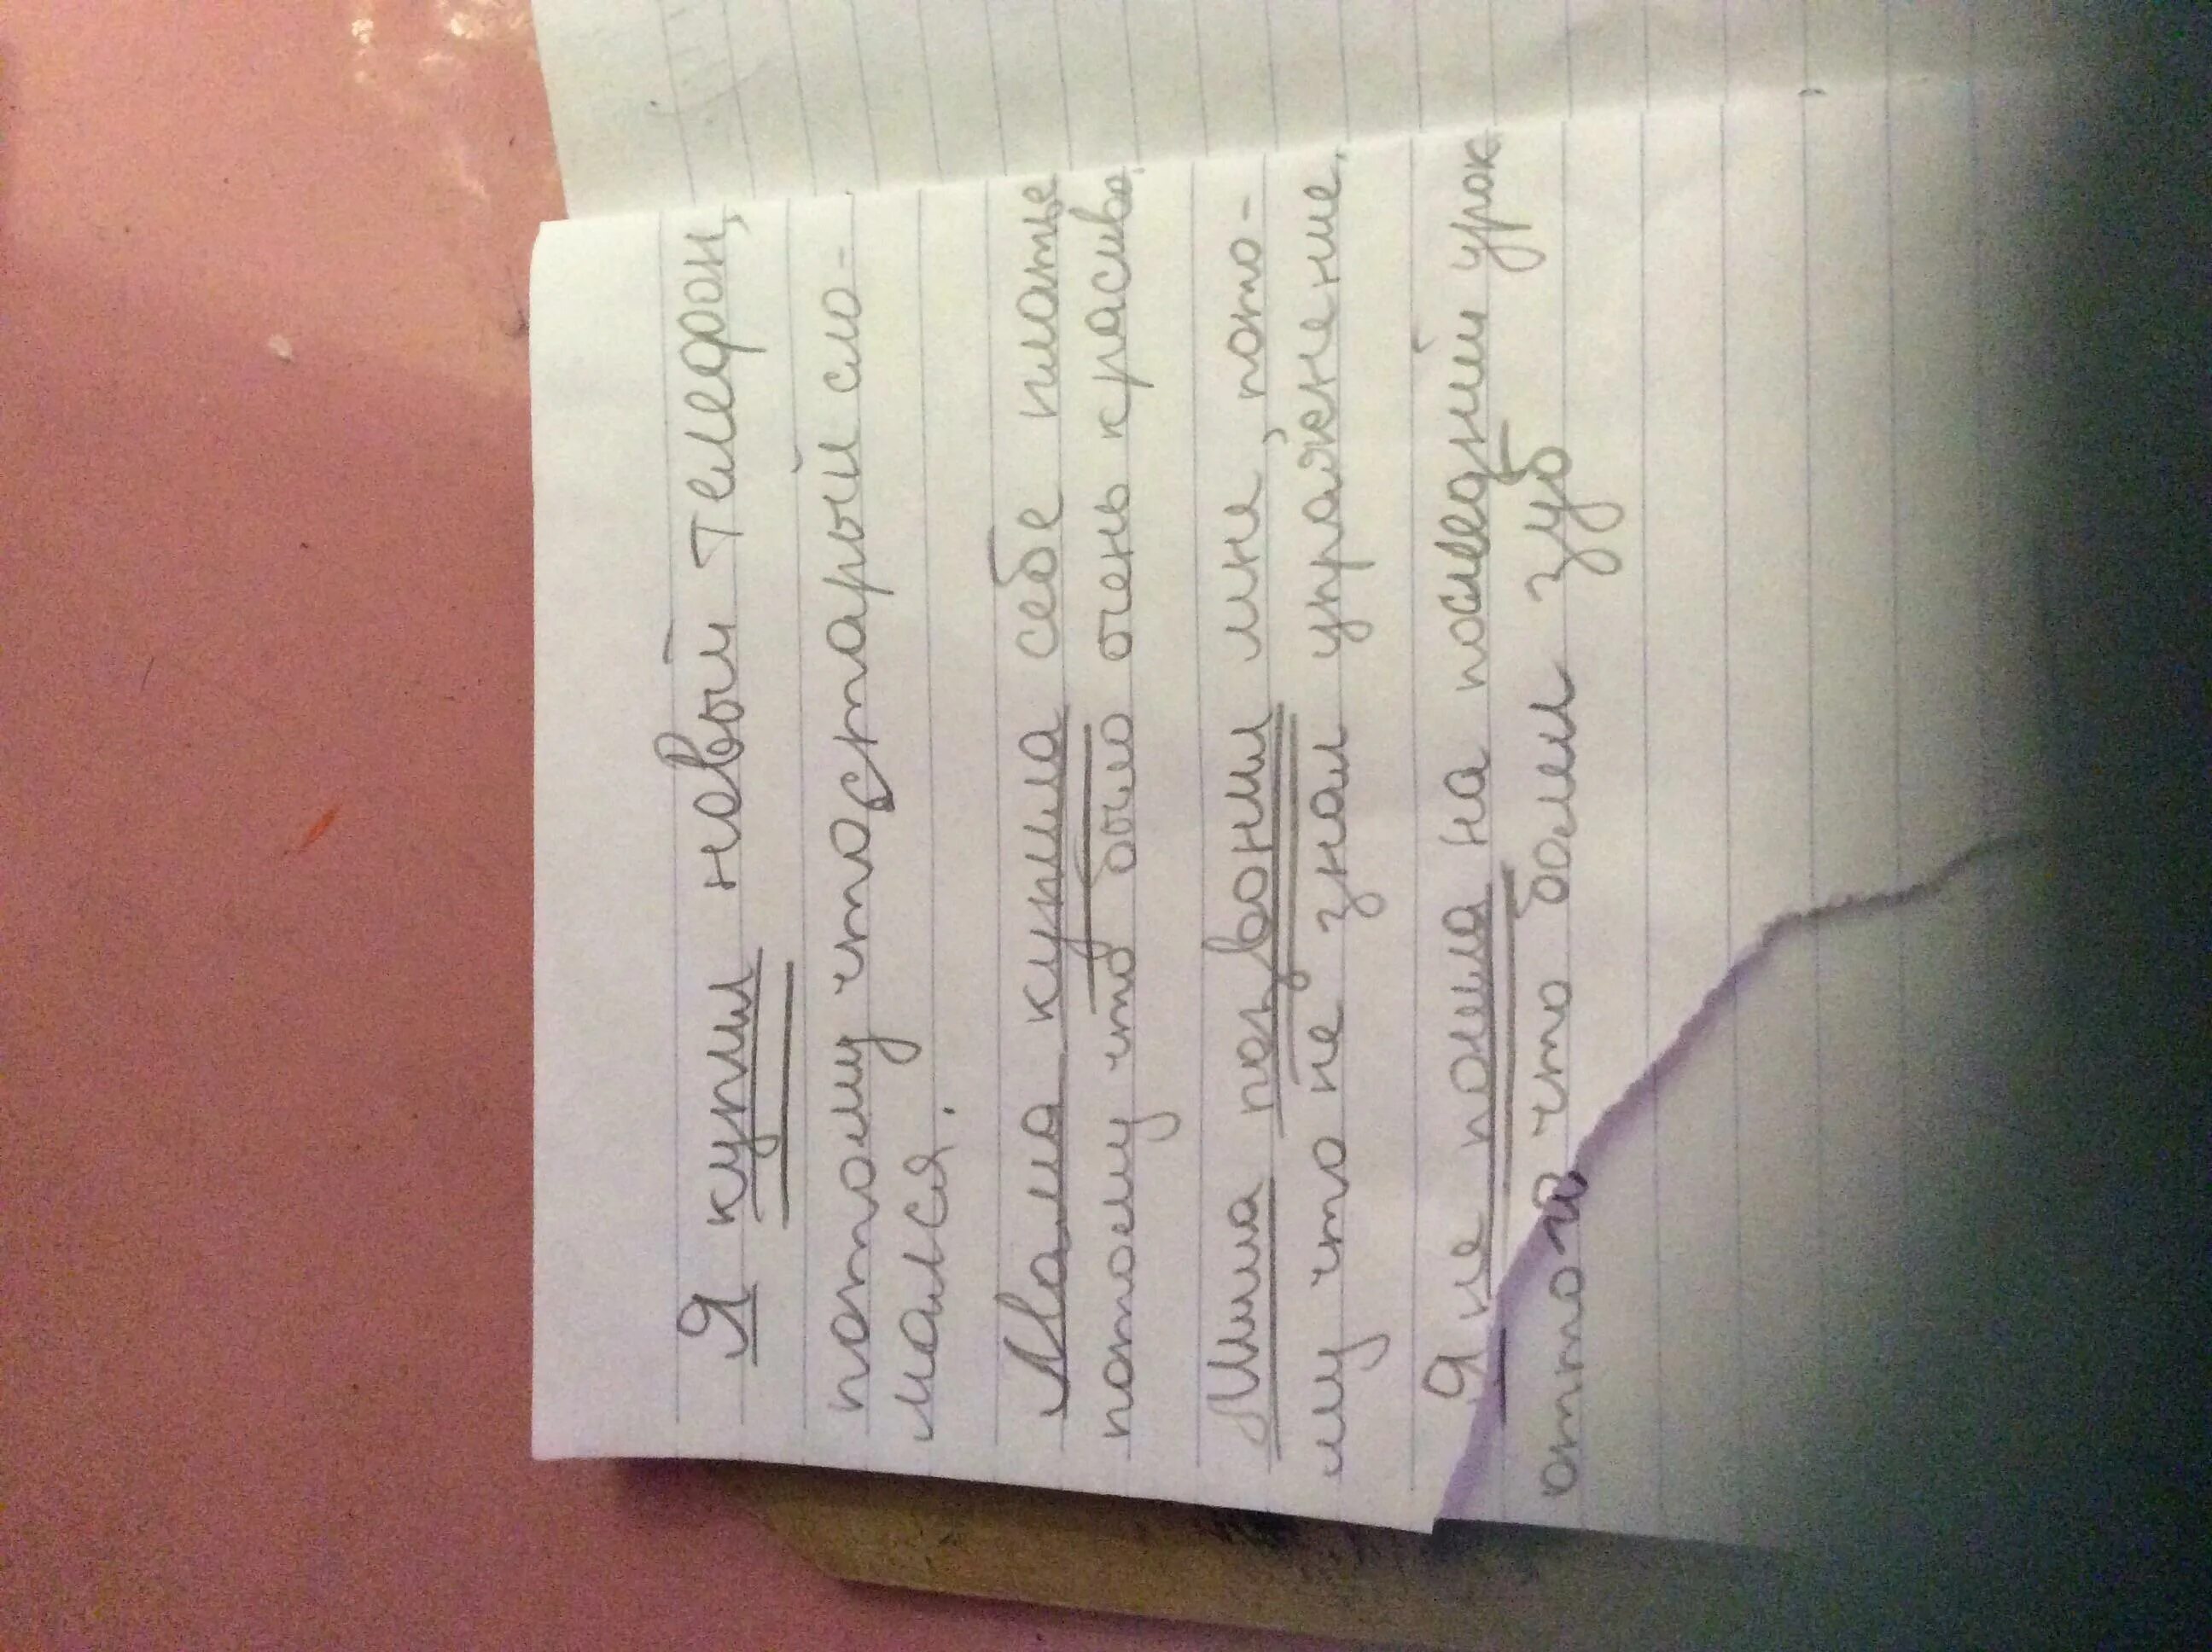 Я купил новый телефон,
потому что старый сло=
мался.
Мама купила себе платье
потому что было очень красиво.
Миша позвонил мне, пото-
му что не знал упражнение.
Я не пошла на последний урок
что болел зуб